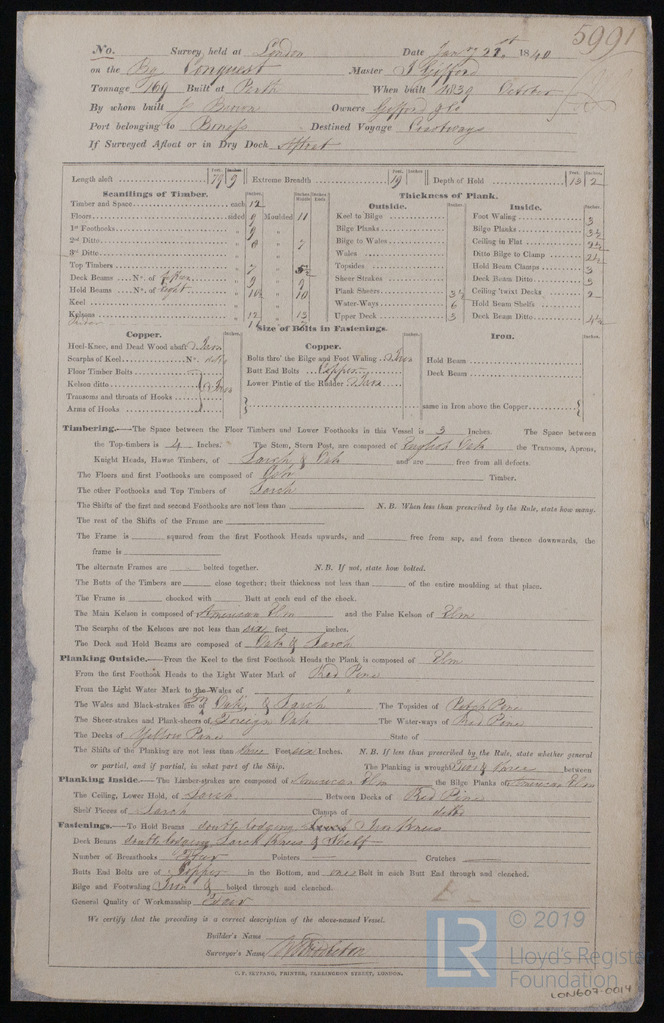 5991
No. Survey held at London Date Jany 21st 1840
on the Bg Conquest Master J Gifford
Tonnage 169 Built at Perth When built 1839 October
By whom built J Owners Gifford & Co
Port belonging to Destined Voyage Coastways
If Surveyed Afloat or in Dry Dock Afloat
Length aloft 79 9 Extreme Breadth 19 Depth of Hold 13 2
Scantlings of Timber.
Timber and Space each 12
Floors sided 9 Moulded 11
1st Foothooks 9
2nd Ditto 8 " 7
3rd Ditto
Top Timbers 7 " 5½
Deck Beams No. of 9 " 9
Hold Beams No. of Eight 10½ " 10
Keel
Kelsons 12 " 13
Thickness of Plank.
Outside.
Keel to Bilge
Bilge Planks
Bilge to Wales
Wales
Topsides
Sheer Strakes
Plank Sheers 3½
Water-Ways 6
Upper Deck 3
Inside.
Foot Waling 3
Bilge Planks 3½
Ceiling in Flat 2½
Ditto Bilge to Clamp 2½
Hold Beam Clamps 3
Deck Beam Ditto 3
Ceiling 'twixt Decks 2
Hold Beam Shelfs
Deck Beam Ditto 4½
Size of Bolts in Fastenings.
Copper.
Heel-Knee, and Dead Wood abaft Iron
Scarphs of Keel No.
Floor Timber Bolts
Kelson ditto Iron
Transoms and throats of Hooks
Arms of Hooks
Copper.
Bolts thro' the Bilge and Foot Waling Iron
Butt End Bolts Copper
Lower Pintle of the Rudder Iron
Iron.
Hold Beam
Deck Beam
same in Iron above the Copper
Timbering.—The Space between the Floor Timbers and Lower Foothooks in this Vessel is 3 Inches. The Space between
the Top-timbers is 4 Inches. The Stem, Stern Post, are composed of English Oak the Transoms, Aprons,
Knight Heads, Hawse Timbers, of Larch & Oak and are free from all defects.
The Floors and first Foothooks are composed of Oak Timber.
The other Foothooks and Top Timbers of Larch
The Shifts of the first and second Foothooks are not less than N. B. When less than prescribed by the Rule, state how many.
The rest of the Shifts of the Frame are
The Frame is squared from the first Foothook Heads upwards, and free from sap, and from thence downwards, the
frame is
The alternate Frames are bolted together. N. B. If not, state how bolted.
The Butts of the Timbers are close together; their thickness not less than of the entire moulding at that place.
The Frame is chocked with Butt at each end of the chock.
The Main Kelson is composed of American Elm and the False Kelson of Elm
The Scarphs of the Kelsons are not less than six feet inches.
The Deck and Hold Beams are composed of Oak & Larch
Planking Outside.—From the Keel to the first Foothook Heads the Plank is composed of Elm
From the first Foothook Heads to the Light Water Mark of Red Pine
From the Light Water Mark to the Wales of "
The Wales and Black-strakes are of Oak, & Larch The Topsides of Pitch Pine
The Sheer-strakes and Plank-sheers of Foreign Oak The Water-ways of Red Pine
The Decks of Yellow Pine State of
The Shifts of the Planking are not less than Feet six Inches. N. B. If less than prescribed by the Rule, state whether general
or partial, and if partial, in what part of the Ship. The Planking is wrought Two & three between
Planking Inside.—The Limber-strakes are composed of American Elm the Bilge Planks of American Elm
The Ceiling, Lower Hold, of Larch Between Decks of Red Pine
Shelf Pieces of Larch Clamps of ditto
Fastenings.—To Hold Beams double lodging Iron Knees
Deck Beams double lodging Larch Knees & Shelf
Number of Breasthooks Four Pointers — Crutches —
Butts End Bolts are of Copper in the Bottom, and one Bolt in each Butt End through and clenched.
Bilge and Footwaling Iron & bolted through and clenched.
General Quality of Workmanship
We certify that the preceding is a correct description of the above-named Vessel.
Builder's Name
Surveyor's Name
C. F. SEYFANG, PRINTER, FARRINGDON STREET, LONDON.
LR © 2019
Lloyd's Register
Foundation
LON607-0014